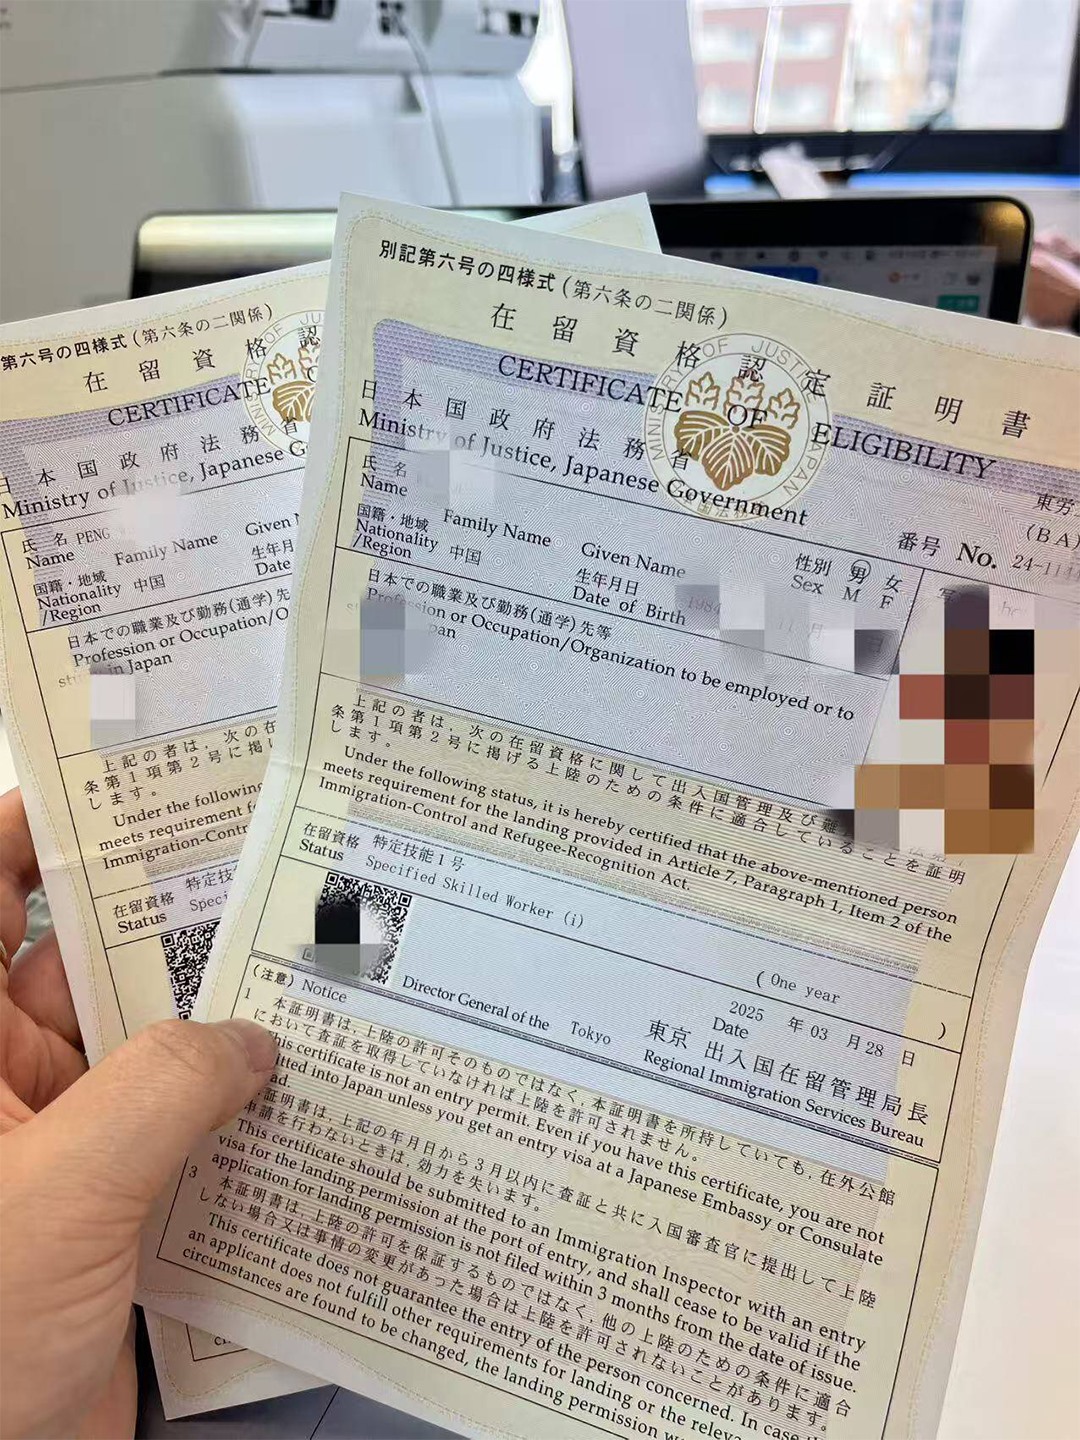 第六号の四様式(第六条の二関係)
在留資格認
CERTIFICATE
日本国政府法務省
Ministry of Justice, Japanese G
氏名 PENG
Name Family Name Given N
国籍・地域 中国 生年月
Nationality Date
/Region
日本での職業及び勤務(通学)先
Profession or Occupation/O
in Japan
上記の者は、次の在
条第1項第2号に掲げ
します。
Under the following
meets requirement f
Immigration-Contr
在留資格 特定技
Status Speci
別記第六号の四様式(第六条の二関係)
在留資格認定証明書
CERTIFICATE OF ELIGIBILITY
MINISTRY OF JUSTICE JAPAN
日本国政府法務省
Ministry of Justice, Japanese Government
東労
(BA)
番号 No. 24-114
氏名
Name Family Name Given Name
性別 男 女
Sex M F
国籍・地域 中国
Nationality
/Region
生年月日 1984 11月 日
Date of Birth
写
日本での職業及び勤務(通学)先等
Profession or Occupation/Organization to be employed or to
pan
上記の者は、次の在留資格に関して出入国管理及び難
条第1項第2号に掲げる上陸のための条件に適合していることを証明
します。
Under the following status, it is hereby certified that the above-mentioned person
meets requirement for the landing provided in Article 7, Paragraph 1, Item 2 of the
Immigration-Control and Refugee-Recognition Act.
在留資格 特定技能1号
Status Specified Skilled Worker (i)
( One year )
2025 年 03 月 28 日
Date
東京 出入国在留管理局長
Director General of the Tokyo Regional Immigration Services Bureau
(注意) Notice
1 本証明書は、上陸の許可そのものではなく、本証明書を所持していても、在外公館
において査証を取得していなければ上陸を許可されません。
This certificate is not an entry permit. Even if you have this certificate, you are not
mitted into Japan unless you get an entry visa at a Japanese Embassy or Consulate
ad.
証明書は、上記の年月日から3月以内に査証と共に入国審査官に提出して上陸
申請を行わないときは、効力を失います。
This certificate should be submitted to an Immigration Inspector with an entry
visa for the landing permission at the port of entry, and shall cease to be valid if the
application for landing permission is not filed within 3 months from the date of issue.
3 本証明書は、上陸の許可を保証するものではなく、他の上陸のための条件に適合
しない場合又は事情の変更があった場合は上陸を許可されないことがあります。
This certificate does not guarantee the entry of the person concerned. In case th
an applicant does not fulfill other requirements for landing or the releva
circumstances are found to be changed, the landing permission w